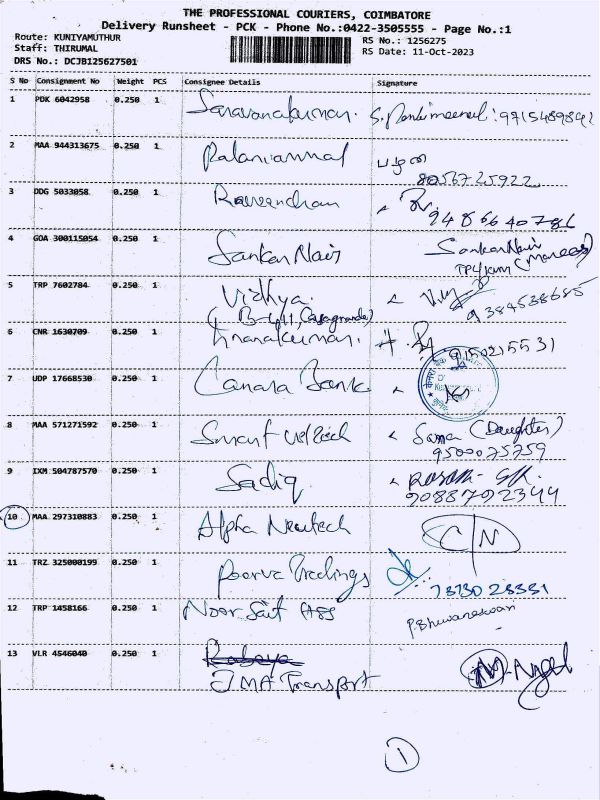 THE PROFESSIONAL COURIERS, COIMBATORE
Delivery Runsheet - PCK - Phone No.:0422-3505555 - Page No.:1
Route: KUNIYAMUTHUR
RS No.: 1256275
Staff: THIRUMAL
RS Date: 11-Oct-2023
DRS No.: DCJB125627501
S No Consignment No Weight PCS Consignee Details Signature
1 PDK 6042958 0.250 1 Saravanakumar. 9715489892
2 MAA 944313675 0.250 1 Palaniammal
8056725922
3 DDG 5033058 0.250 1
9486640786
4 GOA 300115054 0.250 1 Sankar Nair Sankar Nair
5 TRP 7602784 0.250 1 Vidhya.
9384538685
6 CNR 1630709 0.250 1 Gnanakumar.
7 UDP 17668530 0.250 1 Canara Bank
8 MAA 571271592 0.250 1 Smart (Daughter)
9500075759
9 IXM 504787570 0.250 1 Sadiq
9088792344
10 MAA 297310883 0.250 1 Alpha C N
11 TRZ 325000199 0.250 1 Poorva Tradings
7373028331
12 TRP 1458166 0.250 1 Noor Sait P.Bhuvaneswari
13 VLR 4546040 0.250 1 Rabeya
JMA Transport
1